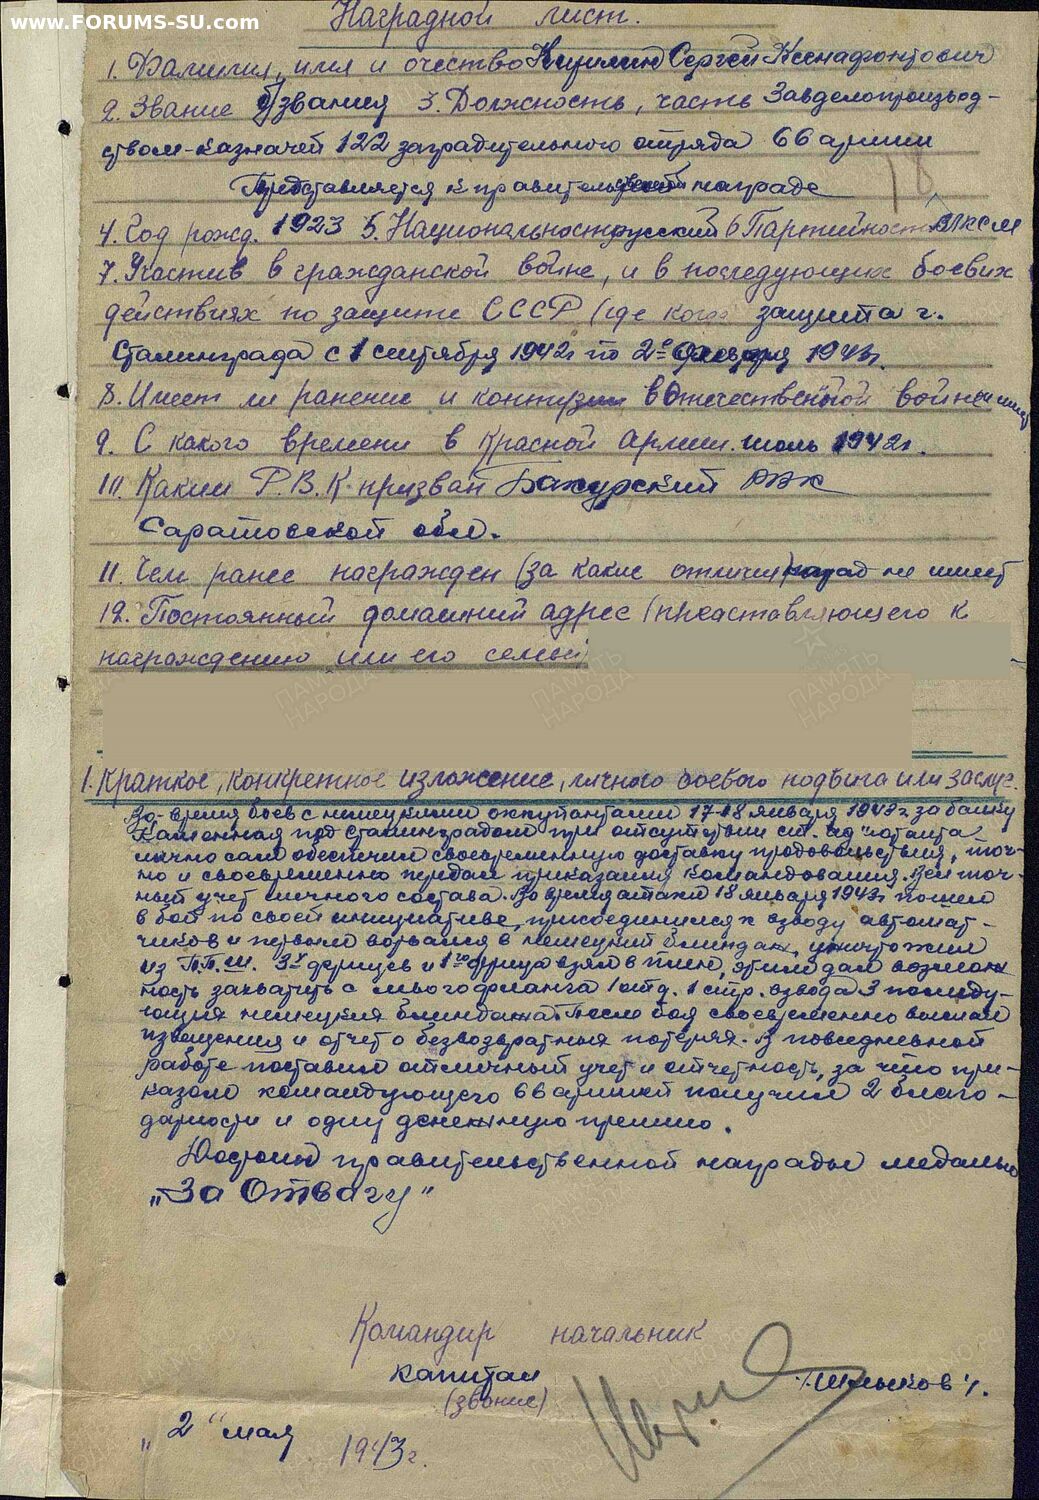 www.FORUMS-SU.com
Наградной лист.
1. Фамилия, имя и очество Сергей Ксенафонтович
2. Звание б/звания 3. Должность, часть Завделопроизвод-
ством-казначей 122 заградительного отряда 66 армии
Представляется к правительственной награде
18
4. Год рожд. 1923 5. Национальность русский 6 Партийность ВЛКСМ
7. Участив в гражданской войне, и в последующих боевих
действиях по защите СССР (где когда защита г.
Сталинграда с 1 сентября 1942г по 2е февраля 1943г.
8. Имеет ли ранение и контузии в Отечественной войне
9. С какого времени в Красной армии. июль 1942г.
10. Каким Р.В.К. призван Бакурский РВК
Саратовской обл.
11. Чем ранее награжден (за какие отличия) наград не имеет
12. Постоянный домашний адрес (представляющего к
награждению или его семьи)
ПАМЯТЬ НАРОДА
1. Краткое, конкретное изложение, личного боевого подвига или заслуг.
Во-время боев с немецкими оккупантами 17-18 января 1943г за балку
Каменная под Сталинградом при отсутствии ст. ад"ютанта
лично сам обеспечил своевременную доставку продовольствия, точ-
но и своевременно передал приказания командования. Вел точ-
ный учет личного состава. Во время атаки 18 января 1943г пошел
в бой по своей инициативе, присоединился к взводу автомат-
чиков и первым ворвался в немецкий блиндаж, уничтожил
из П.П.Ш. 3х фрицев и 1го фрица взял в плен, этим дал возмож
ность захватить с левого фланга 1 отд. 1 стр. взвода 3 последу-
ющия немецкия блиндажа. После боя своевременно выслал
извещения и отчет о безвозвратных потерях. В повседневной
работе поставил отличный учет и отчетность, за что при-
казом командующего 66 армией получил 2 благо-
дарности и одну денежную премию.
Достоин правительственной награды медалью
„За Отвагу"
Командир начальник
капитан
(звание)
„2" мая 1943г.